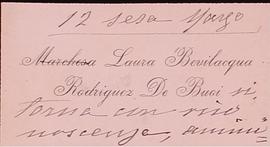 12 sesa Março
Marchesa Laura Bevilacqua
Rodriguez De Buoi si
torna con rico
noscenza,